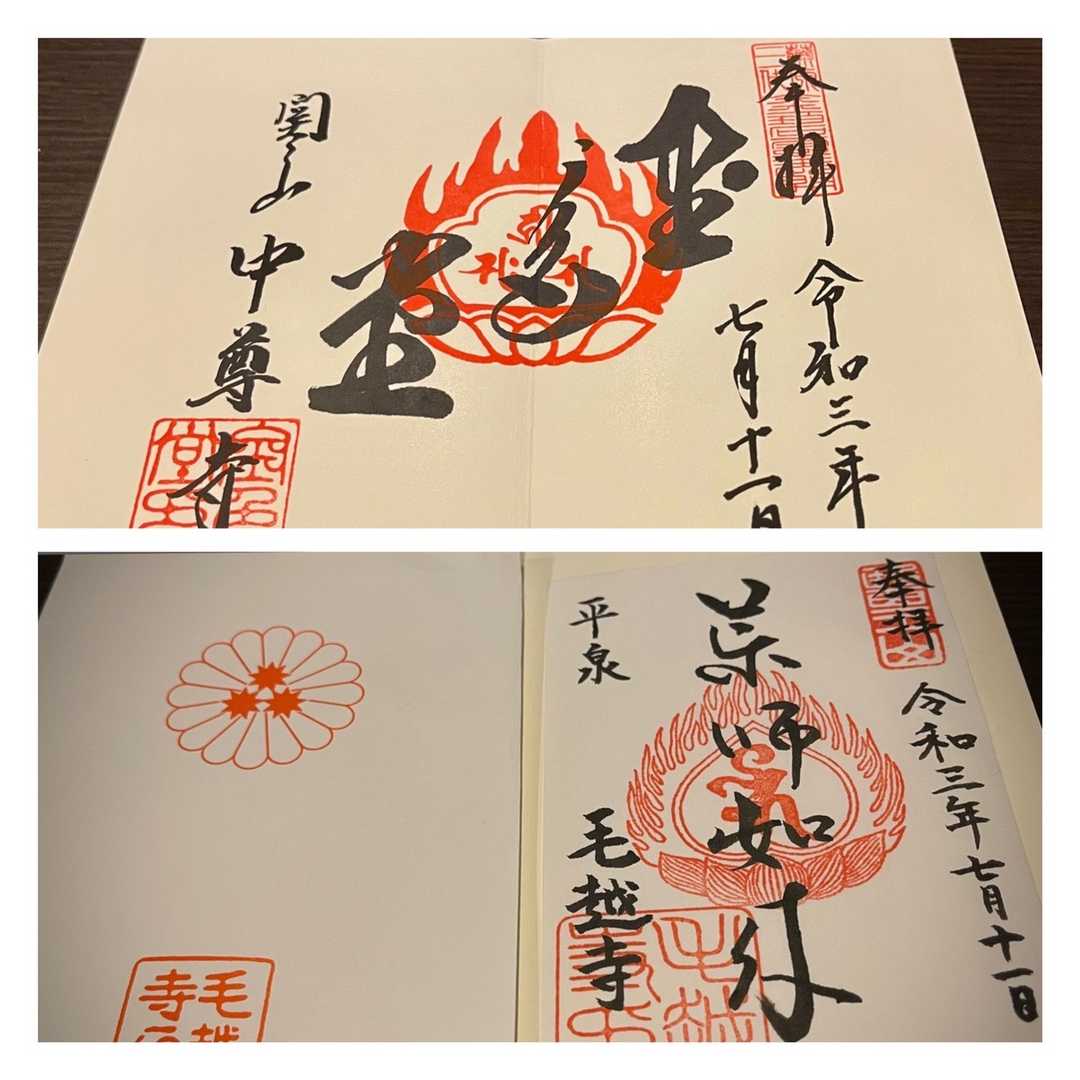 奉拝
令和三年
七月十一日
金色堂
関山
中尊寺
奉拝
令和三年七月十一日
薬師如来
平泉
毛越寺
毛越
寺